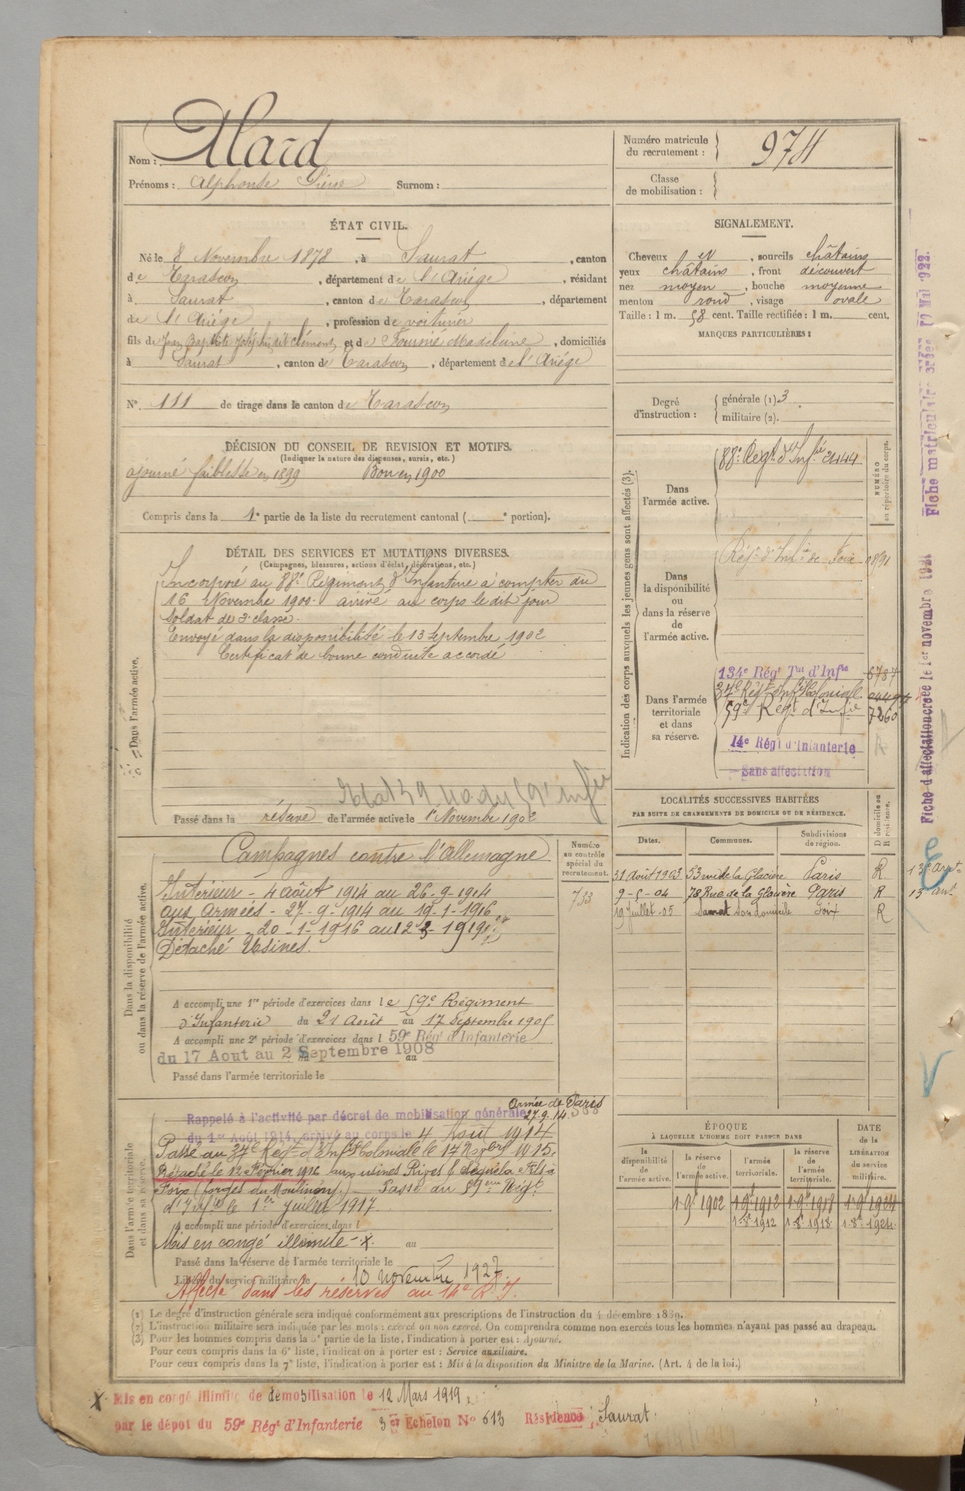 Nom : Alard
Prénoms : Alphonse Pierre Surnom :
Numéro matricule du recrutement : 974
Classe de mobilisation :
ÉTAT CIVIL.
Né le 8 Novembre 1878, à Saurat, canton
de Tarascon, département de l'Ariége, résidant
à Saurat, canton de Tarascon, département
de l'Ariége, profession de voiturier
fils de Jean Baptiste Joseph dit Clément et de Fournié Madeleine, domiciliés
à Saurat, canton de Tarascon, département de l'Ariége
N° 111 de tirage dans le canton de Tarascon
SIGNALEMENT.
Cheveux et, sourcils châtains
yeux châtains, front découvert
nez moyen, bouche moyenne
menton rond, visage ovale
Taille : 1 m. 58 cent. Taille rectifiée : 1 m. cent.
MARQUES PARTICULIÈRES :
Degré d'instruction : générale (1) 3
militaire (2).
DÉCISION DU CONSEIL DE REVISION ET MOTIFS.
(Indiquer la nature des dispenses, sursis, etc.)
ajourné faiblesse en 1899 Bon en 1900
Compris dans la 1e partie de la liste du recrutement cantonal ( e portion).
DÉTAIL DES SERVICES ET MUTATIONS DIVERSES.
(Campagnes, blessures, actions d'éclat, décorations, etc.)
Dans l'armée active.
Incorporé au 88e Régiment d'Infanterie à compter du
16 Novembre 1900. arrivé au corps le dit jour
soldat de 2e classe.
Envoyé dans la disponibilité le 13 Septembre 1902
Certificat de bonne conduite accordé
Passé dans la réserve de l'armée active le 1 Novembre 1902
Indication des corps auxquels les jeunes gens sont affectés (3).
NUMÉRO au répertoire du corps.
Dans l'armée active. 88e Régt d'Infie 2444
Dans la disponibilité ou dans la réserve de l'armée active. Régt d'Infie de Foix 0891
Dans l'armée territoriale et dans sa réserve.
134e Régt Tal d'Infie 6787
37e Régt d'Inf Coloniale
59e Régt d'Infie 7260
14e Régt d'Infanterie
Sans affectation
LOCALITÉS SUCCESSIVES HABITÉES
PAR SUITE DE CHANGEMENTS DE DOMICILE OU DE RÉSIDENCE.
Dates. Communes. Subdivisions de région. D domicile ou R résidence.
31 Août 1903 53 rue de la Glacière Paris R 13e arrt
9-5-04 78 Rue de la Glacière Paris R 13 arrt
19 Juillet -05 Saurat Son domicile Foix R
Dans la disponibilité ou dans la réserve de l'armée active.
Numéro au contrôle spécial du recrutement.
713
Campagnes contre l'Allemagne
Intérieur - 4 août 1914 au 26-9-1914
aux Armées - 27-9-1914 au 19-1-1916
Intérieur - 20-1-1916 au 12 3 1919
Détaché Usines.
A accompli une 1re période d'exercices dans le 59e Régiment
d'Infanterie du 21 Août au 17 Septembre 1905
A accompli une 2e période d'exercices dans l 59e Régt d'Infanterie
du 17 Aout au 2 Septembre 1908
Passé dans l'armée territoriale le
Dans l'armée territoriale et dans sa réserve.
Armée de Paris
Rappelé à l'activité par décret de mobilisation générale 27.9.14
du 1er Août 1914, arrivé au corps le 4 Août 1914
Passé au 37e Régt d'Inf Coloniale le 17 Nov 1915.
Détaché le 12 Février 1916 aux usines
Foix (forges du Moulinery) Passé au 59ème Régt
d'Infie le 1er Juillet 1917.
A accompli une période d'exercices dans l
Mis en congé illimité - x. au
Passé dans la réserve de l'armée territoriale le
Libéré du service militaire le 10 novembre 1927.
Affecté dans les réserves au 14e R.I.
ÉPOQUE
A LAQUELLE L'HOMME DOIT PASSER DANS
la disponibilité de l'armée active. la réserve de l'armée active. l'armée territoriale. la réserve de l'armée territoriale.
DATE de la LIBÉRATION du service militaire.
1-9-1902 1-9-1912 1-9-1918 1-9-1924
1-8-1912 1-8-1918 1-8-1924
(1) Le degré d'instruction générale sera indiqué conformément aux prescriptions de l'instruction du 4 décembre 1889.
(2) L'instruction militaire sera indiquée par les mots : exercé ou non exercé. On comprendra comme non exercés tous les hommes n'ayant pas passé au drapeau.
(3) Pour les hommes compris dans la 5e partie de la liste, l'indication à porter est : Ajourné.
Pour ceux compris dans la 6e liste, l'indication à porter est : Service auxiliaire.
Pour ceux compris dans la 7e liste, l'indication à porter est : Mis à la disposition du Ministre de la Marine. (Art. 4 de la loi.)
x Mis en congé illimité de démobilisation le 12 Mars 1919
par le dépot du 59e Régt d'Infanterie 3er Echelon N° 613 Résidence Saurat.
Fiche d'affectation créée le 1er novembre 1921
Fiche matriculaire créée